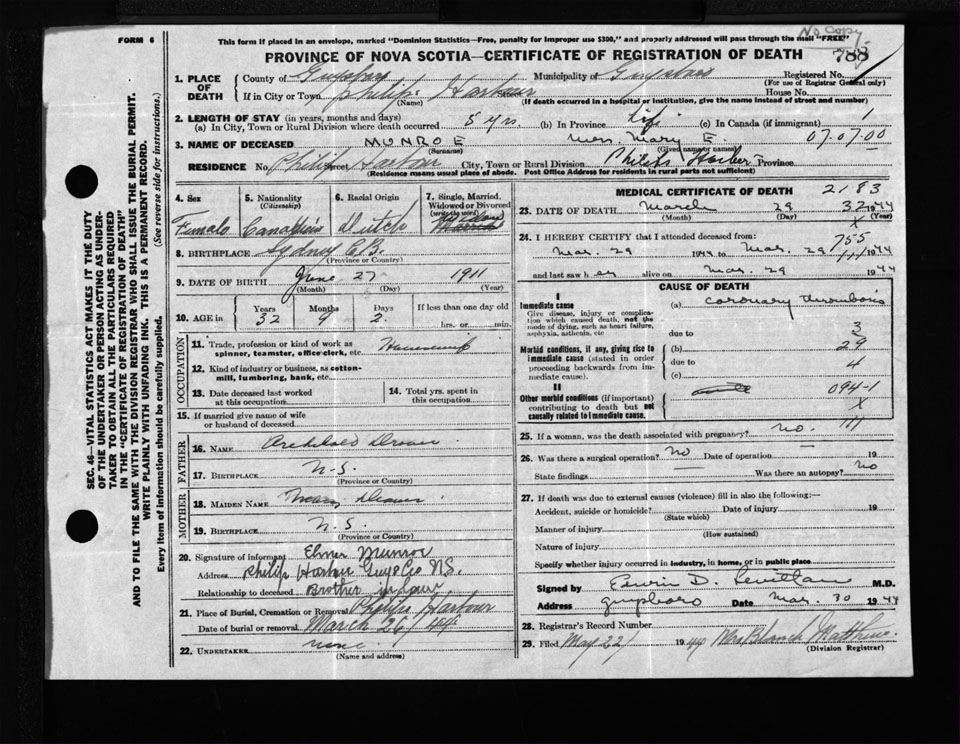 No Copy
FORM 6
This form if placed in an envelope, marked "Dominion Statistics—Free, penalty for improper use $300," and properly addressed will pass through the mail "FREE"
PROVINCE OF NOVA SCOTIA—CERTIFICATE OF REGISTRATION OF DEATH
788
1. PLACE OF DEATH
County of Guysboro Municipality of Guysboro Registered No.
(For use of Registrar General only)
If in City or Town Philips Harbour House No.
(Name) (If death occurred in a hospital or institution, give the name instead of street and number)
2. LENGTH OF STAY (in years, months and days)
(a) In City, Town or Rural Division where death occurred 5 yrs. (b) In Province Life (c) In Canada (if immigrant) 1
3. NAME OF DECEASED MUNROE Mrs. Mary E. 07.07.00
(Surname) (Given name or names)
RESIDENCE No. Philip Street Harbour City, Town or Rural Division Philips Harbor Province
(Residence means usual place of abode. Post Office Address for residents in rural parts not sufficient)
4. Sex
Female
5. Nationality (Citizenship)
Canadian
6. Racial Origin
Dutch
7. Single, Married, Widowed or Divorced (write the word)
Married
8. BIRTHPLACE Sydney C.B.
(Province or Country)
9. DATE OF BIRTH June 27 1911
(Month) (Day) (Year)
10. AGE in
Years 32 Months 9 Days 2 If less than one day old
hrs. or min.
OCCUPATION
11. Trade, profession or kind of work as spinner, teamster, office clerk, etc.
12. Kind of industry or business, as cotton-mill, lumbering, bank, etc.
13. Date deceased last worked at this occupation
14. Total yrs. spent in this occupation
15. If married give name of wife or husband of deceased
FATHER
16. NAME Archibald
17. BIRTHPLACE N.S.
(Province or Country)
MOTHER
18. MAIDEN NAME Mary
19. BIRTHPLACE N.S.
(Province or Country)
20. Signature of informant Elmer Munroe
Address Philip Harbour Guys Co NS.
Relationship to deceased Brother in law
21. Place of Burial, Cremation or Removal Philips Harbour
Date of burial or removal March 26/44
22. UNDERTAKER none
(Name and address)
MEDICAL CERTIFICATE OF DEATH
2183
23. DATE OF DEATH March 29 32 1944
(Month) (Day) (Year)
X
24. I HEREBY CERTIFY that I attended deceased from: 755
Mar. 29 1944 to Mar. 29 1944
and last saw her alive on Mar. 29 1944
CAUSE OF DEATH
I
Immediate cause
Give disease, injury or complication which caused death, not the mode of dying, such as heart failure, asphyxia, asthenia, etc
(a) coronary thrombosis
due to 3
Morbid conditions, if any, giving rise to immediate cause (stated in order proceeding backwards from immediate cause).
(b) 29
due to 4
(c)
II
094-1
Other morbid conditions (if important) contributing to death but not causally related to immediate cause.
X
111
25. If a woman, was the death associated with pregnancy? no.
26. Was there a surgical operation? No Date of operation 19
State findings — Was there an autopsy? No
27. If death was due to external causes (violence) fill in also the following:—
Accident, suicide or homicide? Date of injury 19
(State which)
Manner of injury
(How sustained)
Nature of injury
Specify whether injury occurred in industry, in home, or in public place
Signed by Edwin D. M.D.
Address Guysboro Date Mar. 30 1944
28. Registrar's Record Number
29. Filed May 22/ 1944 Mrs Blanch Matthews.
(Division Registrar)
SEC. 46—VITAL STATISTICS ACT MAKES IT THE DUTY
OF THE UNDERTAKER OR PERSON ACTING AS UNDER-
TAKER TO OBTAIN ALL THE PARTICULARS REQUIRED
IN THE "CERTIFICATE OF REGISTRATION OF DEATH"
AND TO FILE THE SAME WITH THE DIVISION REGISTRAR WHO SHALL ISSUE THE BURIAL PERMIT.
WRITE PLAINLY WITH UNFADING INK. THIS IS A PERMANENT RECORD.
Every item of information should be carefully supplied. (See reverse side for instructions.)